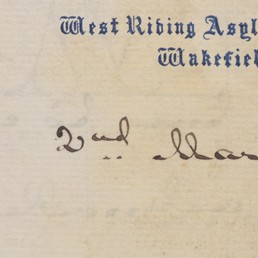 West Riding Asyl
Wakefiel
2nd Mar